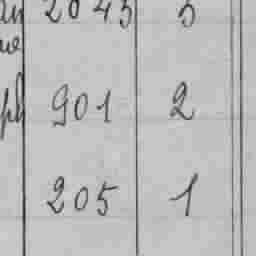 2045 5
901 2
205 1